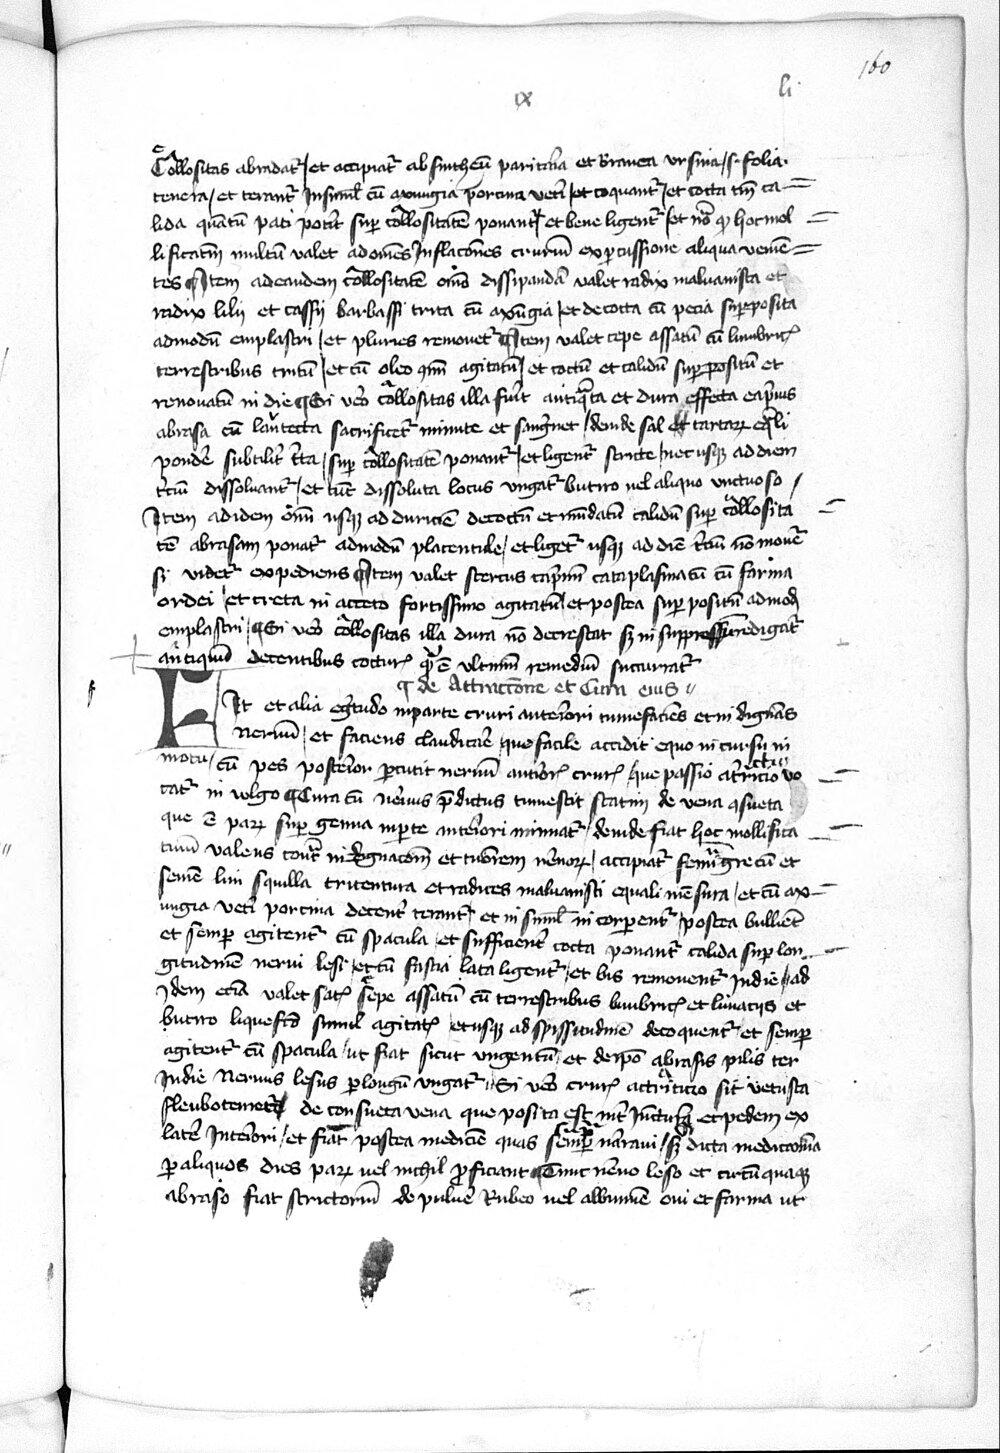 160
li
ix
Collositas abradat᷑ / et accipiat᷑ absintheu᷑ paritaria et branca ursina / s. folia
tenera / et terant᷑ insimul cū axungia porcina vet᷑i et coquant᷑ / et cocta tm̄ ca-
lida quātū pati potit sup collositatē ponant᷑ / et bene ligent᷑ / et nō q hoc mol
lificatiū multū valet ad omēs inflacōnes crurium ex percussione aliqua venie-
tes ¶ Item ad eandem collositatē om̄o dissipandā valet radix malvavisci et
radix lilij et tassij barbassi trita cū axungia / et decocta cū pecia superposita
ad modū emplastri / et pluries removet᷑ ¶ Item valet cepe assatū cū lumbric᷑
terrestribus tritū / et cū oleo agitatū / et coctū et calidū suppositū et
renovatū in die ¶ Si vero collositas illa fuit antiq̄ta et dura effecta ea prius
abrasa cū lanceta sacrificet᷑ minute et sang̅net / deinde sal et tartarꝝ eq̄li
pondē subtilit᷑ t̄ta / sup collositatē ponant᷑ / et ligent᷑ stricte / nec usqꝫ ad diem
t̄ciū dissolvant᷑ / et tūc dissoluta locus ungat᷑ butiro vel aliquo unctuoso /
Item ad idem usqꝫ ad duriciē decoctū et mūdatū calidū sup collosita
tē abrasam ponat᷑ ad modū placentule / et liget᷑ usqꝫ ad diē t̄ciū nō move᷑
sꝫ videt᷑ expediens ¶ Item valet stercus cap̄inū cataplasmatū cū farina
ordei / et creta in acceto fortissimo agitatū / et postea sup positū ad modū
emplastri / ¶ Si vero collositas illa dura nō decrescat sꝫ in redigat᷑
antiquū decentibus coctur᷑ q̄ ē ultimū remediū sucurrat᷑
¶ de Attraccōne et Cura eius
Fit et alia egritudo in parte cruri anteriori tumefaciēs et in dignās
nervum / et faciens claudicare / que facile accidit equo in cursu in
motu / cū pes posterior percutit nervū antior᷑ crur᷑ / que passio atricio vo
cat᷑ in volgo ¶ Cura cū nervus p̄dictus tumescit statim de vena ꝯsueta
que ē parꝝ sup genua in parte anteriori minuat᷑ / deinde fiat hoc mollifica
tivū valens cont᷑ indignacōem et tumorem nervorꝝ / accipiat᷑ fenugrecū et
semē lini squilla tritentura et radices malvavisci equali mēsura / et cū ax-
ungia vet᷑i porcina decent᷑ terant᷑ et insimul incorporent᷑ / postea bulliēt
et semper agitent᷑ cū spacula / et sufficient᷑ cocta ponant᷑ calida sup lon-
gitudinē nervi lesi / et cū fascia lata ligent᷑ / et bis removent᷑ in die / ad
idem eciā valet sat᷑ cepe assatū cū terrestribus lumbric᷑ et limaciis et
butiro liquefcō simul agitat᷑ / et usqꝫ ad spissitudinē decoquent᷑ et semper
agitent᷑ cū spacula / ut fiat sicut ungentū / et deipō abrasis pilis ter
in die nervus lesus per longū ungat᷑ // Si vero crur᷑ attritio sit vetusta
fleubotemet᷑ de consueta vena que posita est int᷑ iuncturā et pedem ex
lat᷑e interiori / et fiāt postea medicīe quas semper n̄aravi / sꝫ dicta medicamīa
per aliquos dies parꝝ vel nichil proficiant ¶ Tunc n̄vo leso et circūquaqꝫ
abraso fiat strictoriū de pulve᷑ rubeo vel albumīe ovi et farina ut